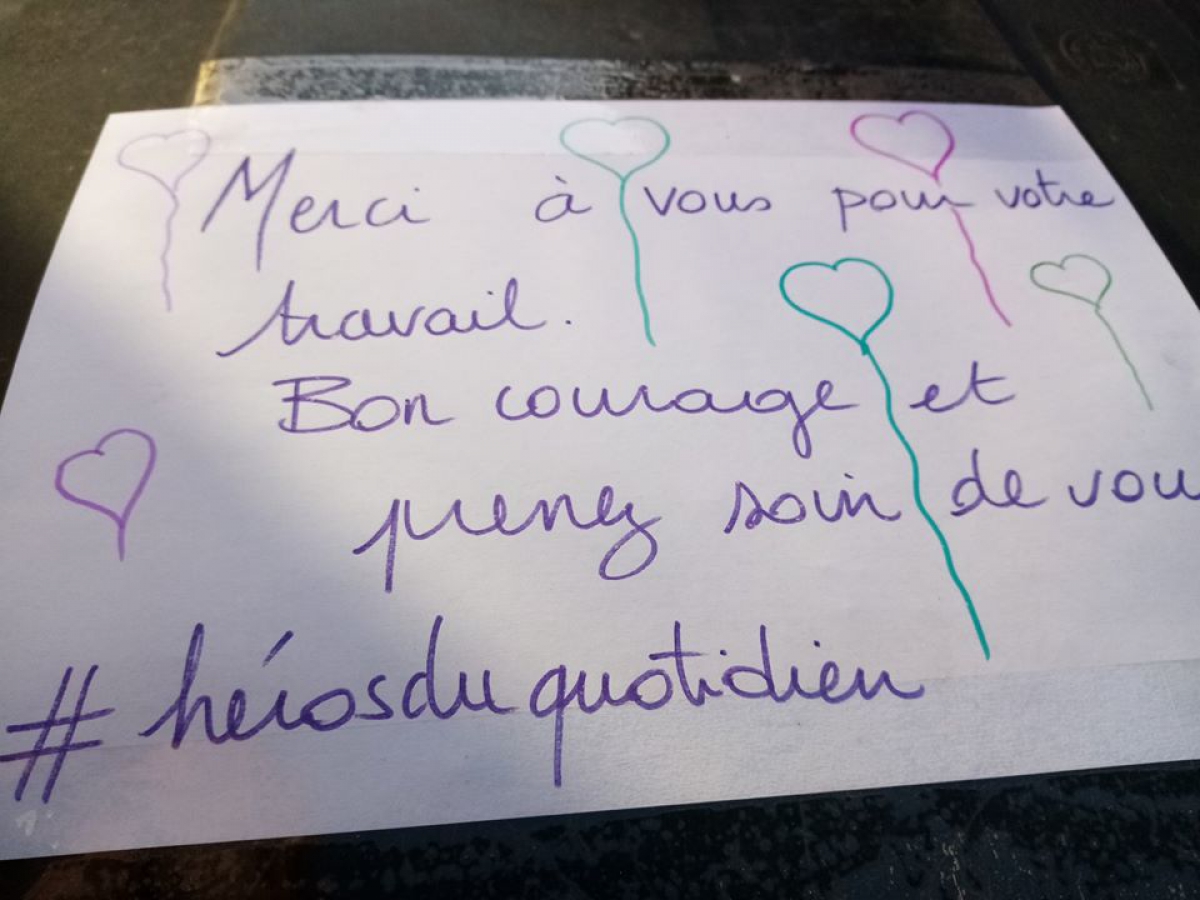 Merci à vous pour votre
travail.
Bon courage et
prenez soin de vou
#hérosduquotidien